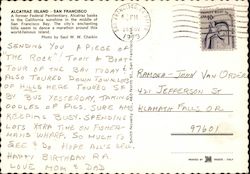 ALCATRAZ ISLAND - SAN FRANCISCO
A former Federal Penitentiary, Alcatraz basks
in the California sunshine in the middle of
San Francisco Bay. The city's enchanting
hills seem to dance a marathon around this
world-famous island.
Photo by Saul W. W. Chaikin
SENDING YOU A PIECE OF
THE ROCK! TOOK A BOAT
TOUR OF THE BAY TODAY &
ALSO TOURED DOWN TOWN. LOTS
OF HILLS HERE TOURED SF
BY BUS YESTERDAY. TAKING
OODLES OF PICS. SURE ARE
KEEPING BUSY. SPENDING
LOTS XTRA TIME ON FISHER-
MANS WHARF, SO MUCH TO
SEE & DO HOPE ALL'S WELL
HAPPY BIRTHDAY R.A.
LOVE MOM & DAD
PM
RAMONA - JOHN VAN ORDER
421 JEFFERSON ST
KLAMATH FALLS OR.
97601